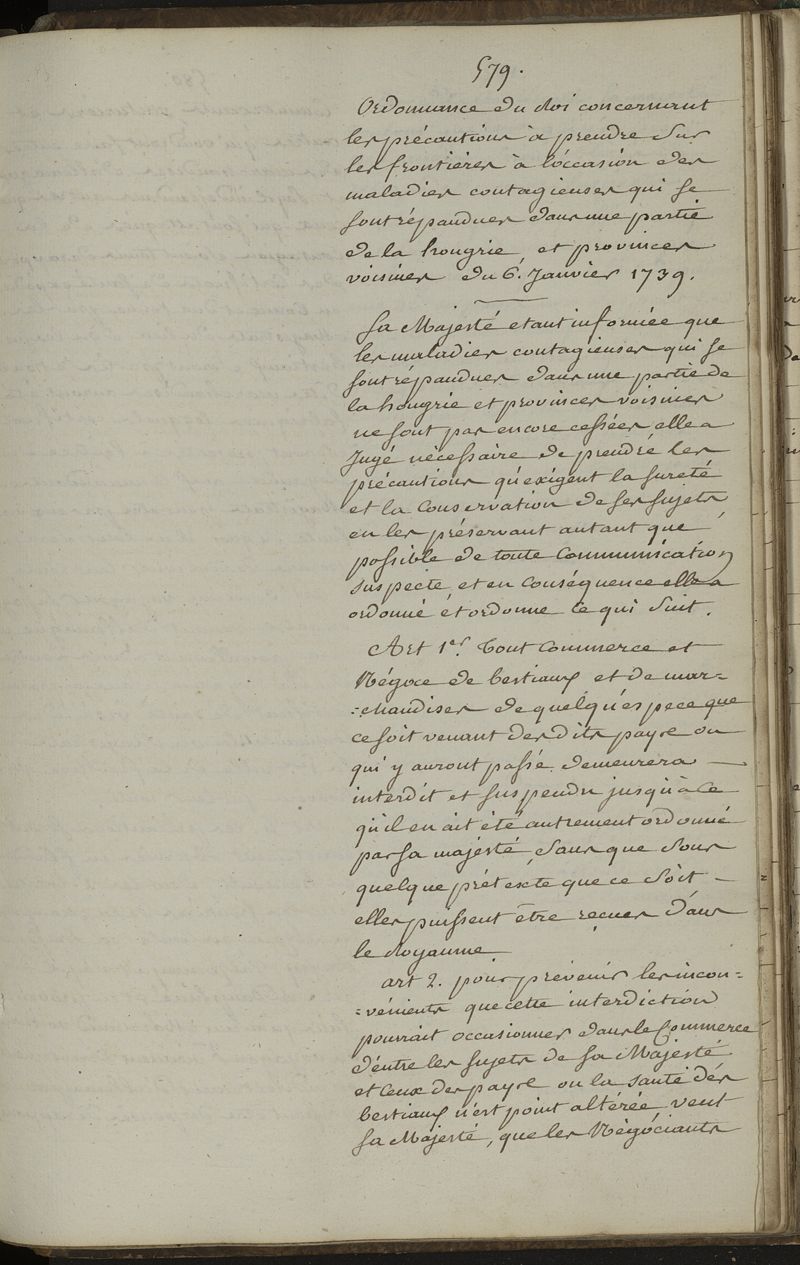 579.
Ordonnance du Roi concernant
les précautions à prendre sur
les frontieres à l'occasion des
maladies contagieuses qui se
sont répandues dans une partie
de la hongrie, et provinces
voisines du 6. Janvier 1739.
Sa Majesté etant informée que
les maladies contagieuses qui se
sont répandues dans une partie de
la hongrie et provinces voisines
ne sont pas encore cessées, elle a
Jugé nécessaire de prendre les
précautions qu'exigent la sureté
et la Conservation de ses sujets
en les préservant autant que
possible de toute Communication
suspecte, et en Conséquence elle a
ordonné et ordonne ce qui suit.
Art 1er. Tout Commerce et
Négoce de bestiaux et de mar=
=chandises de quelqu'espece que
ce soit venant desdits payse ou
qui y auront passé, demeurera
interdit et suspendu jusqu'à ce
qu'il en ait été autrement ordonné
par sa majésté, sans que sous
quelque prétexte que ce soit
elles puissent être reçues dans
le Royaume
art 2. pour prévenir les incon=
=vénients que cette interdiction
pourrait occasionner dans le Commerce
d'entre les sujets de sa Majesté
et Ceux des payse ou la santé des
bestiaux n'est point altérée, veut
sa Majesté, que les Négociants